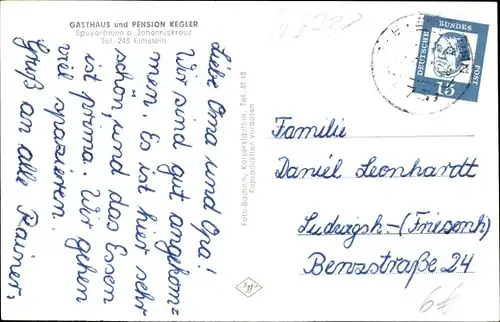 GASTHAUS und PENSION KEGLER
Speyerbrunn b. Johanniskreuz
Tel. 245 Elmstein
Liebe Oma und Opa!
Wir sind gut angekom=
men. Es ist hier sehr
schön, und das Essen
ist prima. Wir gehen
viel spazieren.
Gruß an alle Rainer.
Foto-Bachem, Kaiserslautern, Tel. 51 58
Reproduktion verboten
DEUTSCHE BUNDES POST
15
Familie
Daniel Leonhardt
Ludwigsh-(Friesenh)
Benzstraße 24
6€